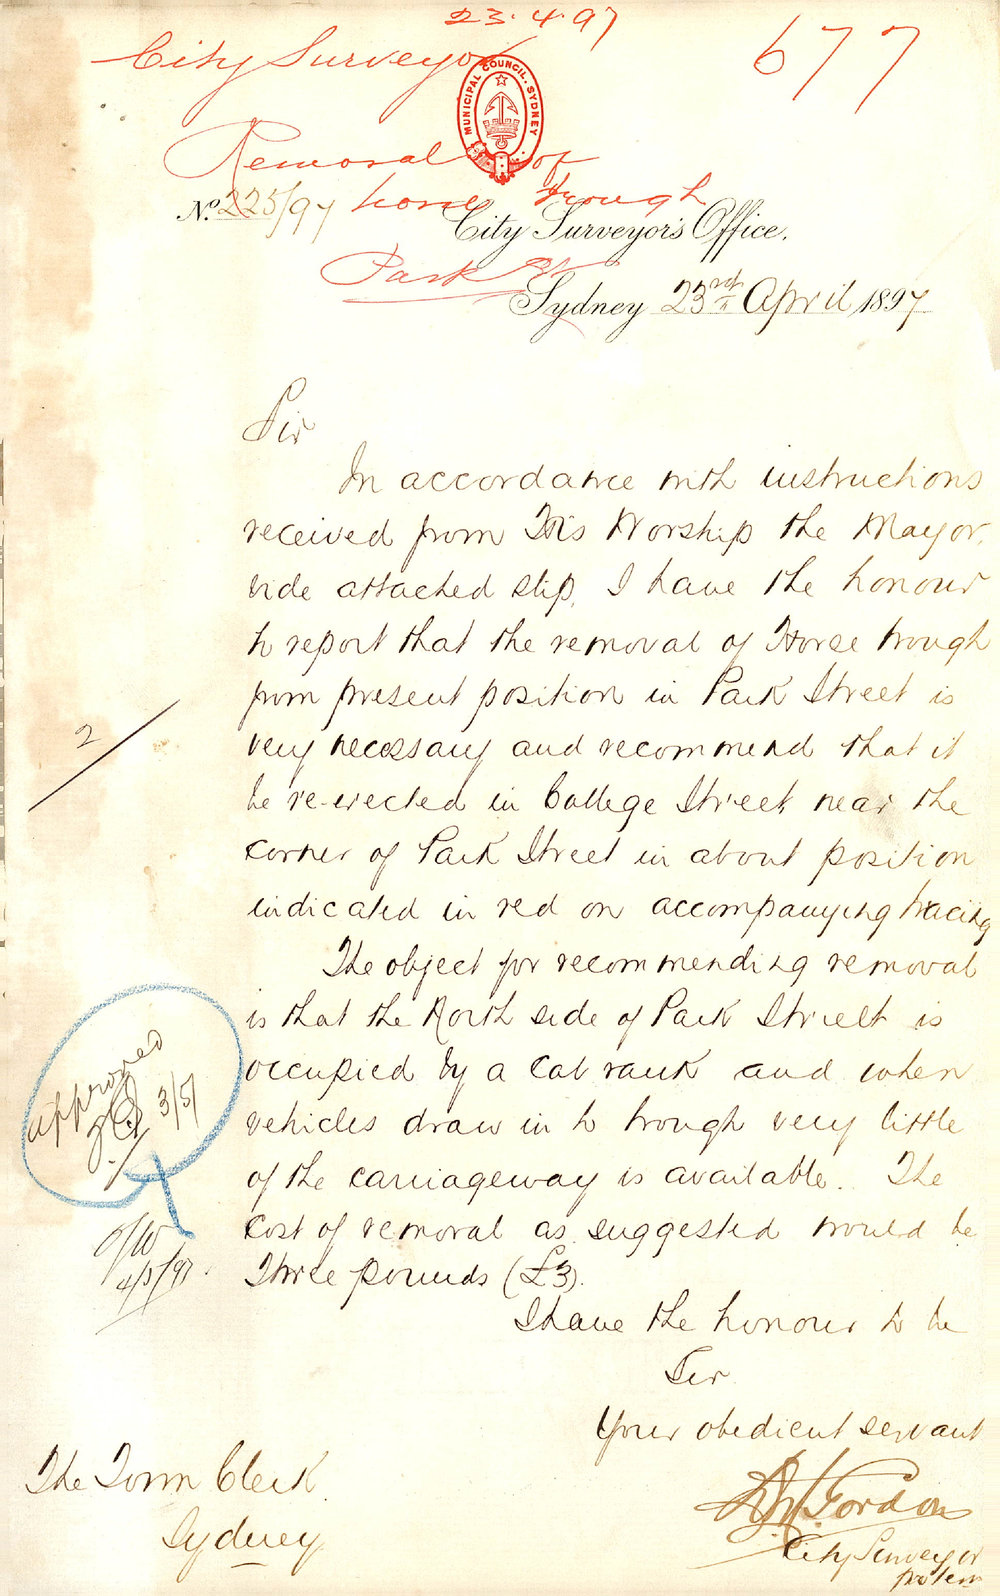 23.4.97
City Surveyor
677
MUNICIPAL COUNCIL. SYDNEY
Removal of
horse trough
Park St
No. 225/97
City Surveyor's Office,
Sydney 23rd April 1897
Sir
In accordance with instructions
received from His Worship the Mayor,
vide attached slip, I have the honour
to report that the removal of Horse trough
from present position in Park Street is
very necessary and recommend that it
be re-erected in College Street near the
corner of Park Street in about position
indicated in red on accompanying tracing
The object for recommending removal
is that the North side of Park Street is
occupied by a Cab rank and when
vehicles draw in to trough very little
of the carriageway is available. The
cost of removal as suggested would be
Three pounds (£3).
I have the honour to be
Sir
Your obedient servant
Gordon
City Surveyor
pro tem
The Town Clerk
Sydney
2
approved
3/5/
4/5/97.